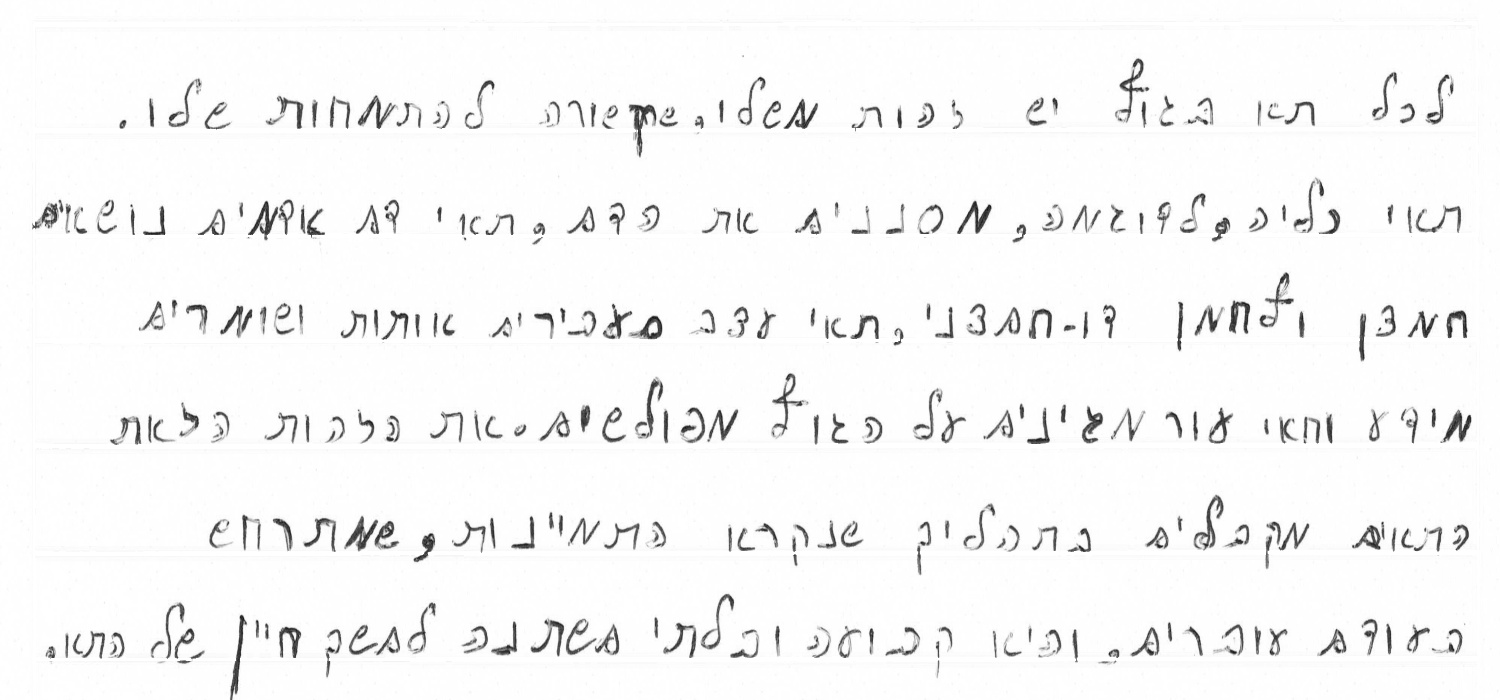 לכל תא בגוף יש זהות משלו, שקשורה להתמחות שלו.
תאי כליה, לדוגמה, מסננים את הדם, תאי דם אדמים נושאים
חמצן ופחמן דו-חמצני, תאי עצב מעבירים אותות ושומרים
מידע ותאי עור מגינים על הגוף מפולשים. את הזהות הזאת
התאים מקבלים בתהליך שנקרא התמיינות, שמתרחש
בעודם עוברים, והיא קבועה ובלתי משתנה למשך חייו של התא.